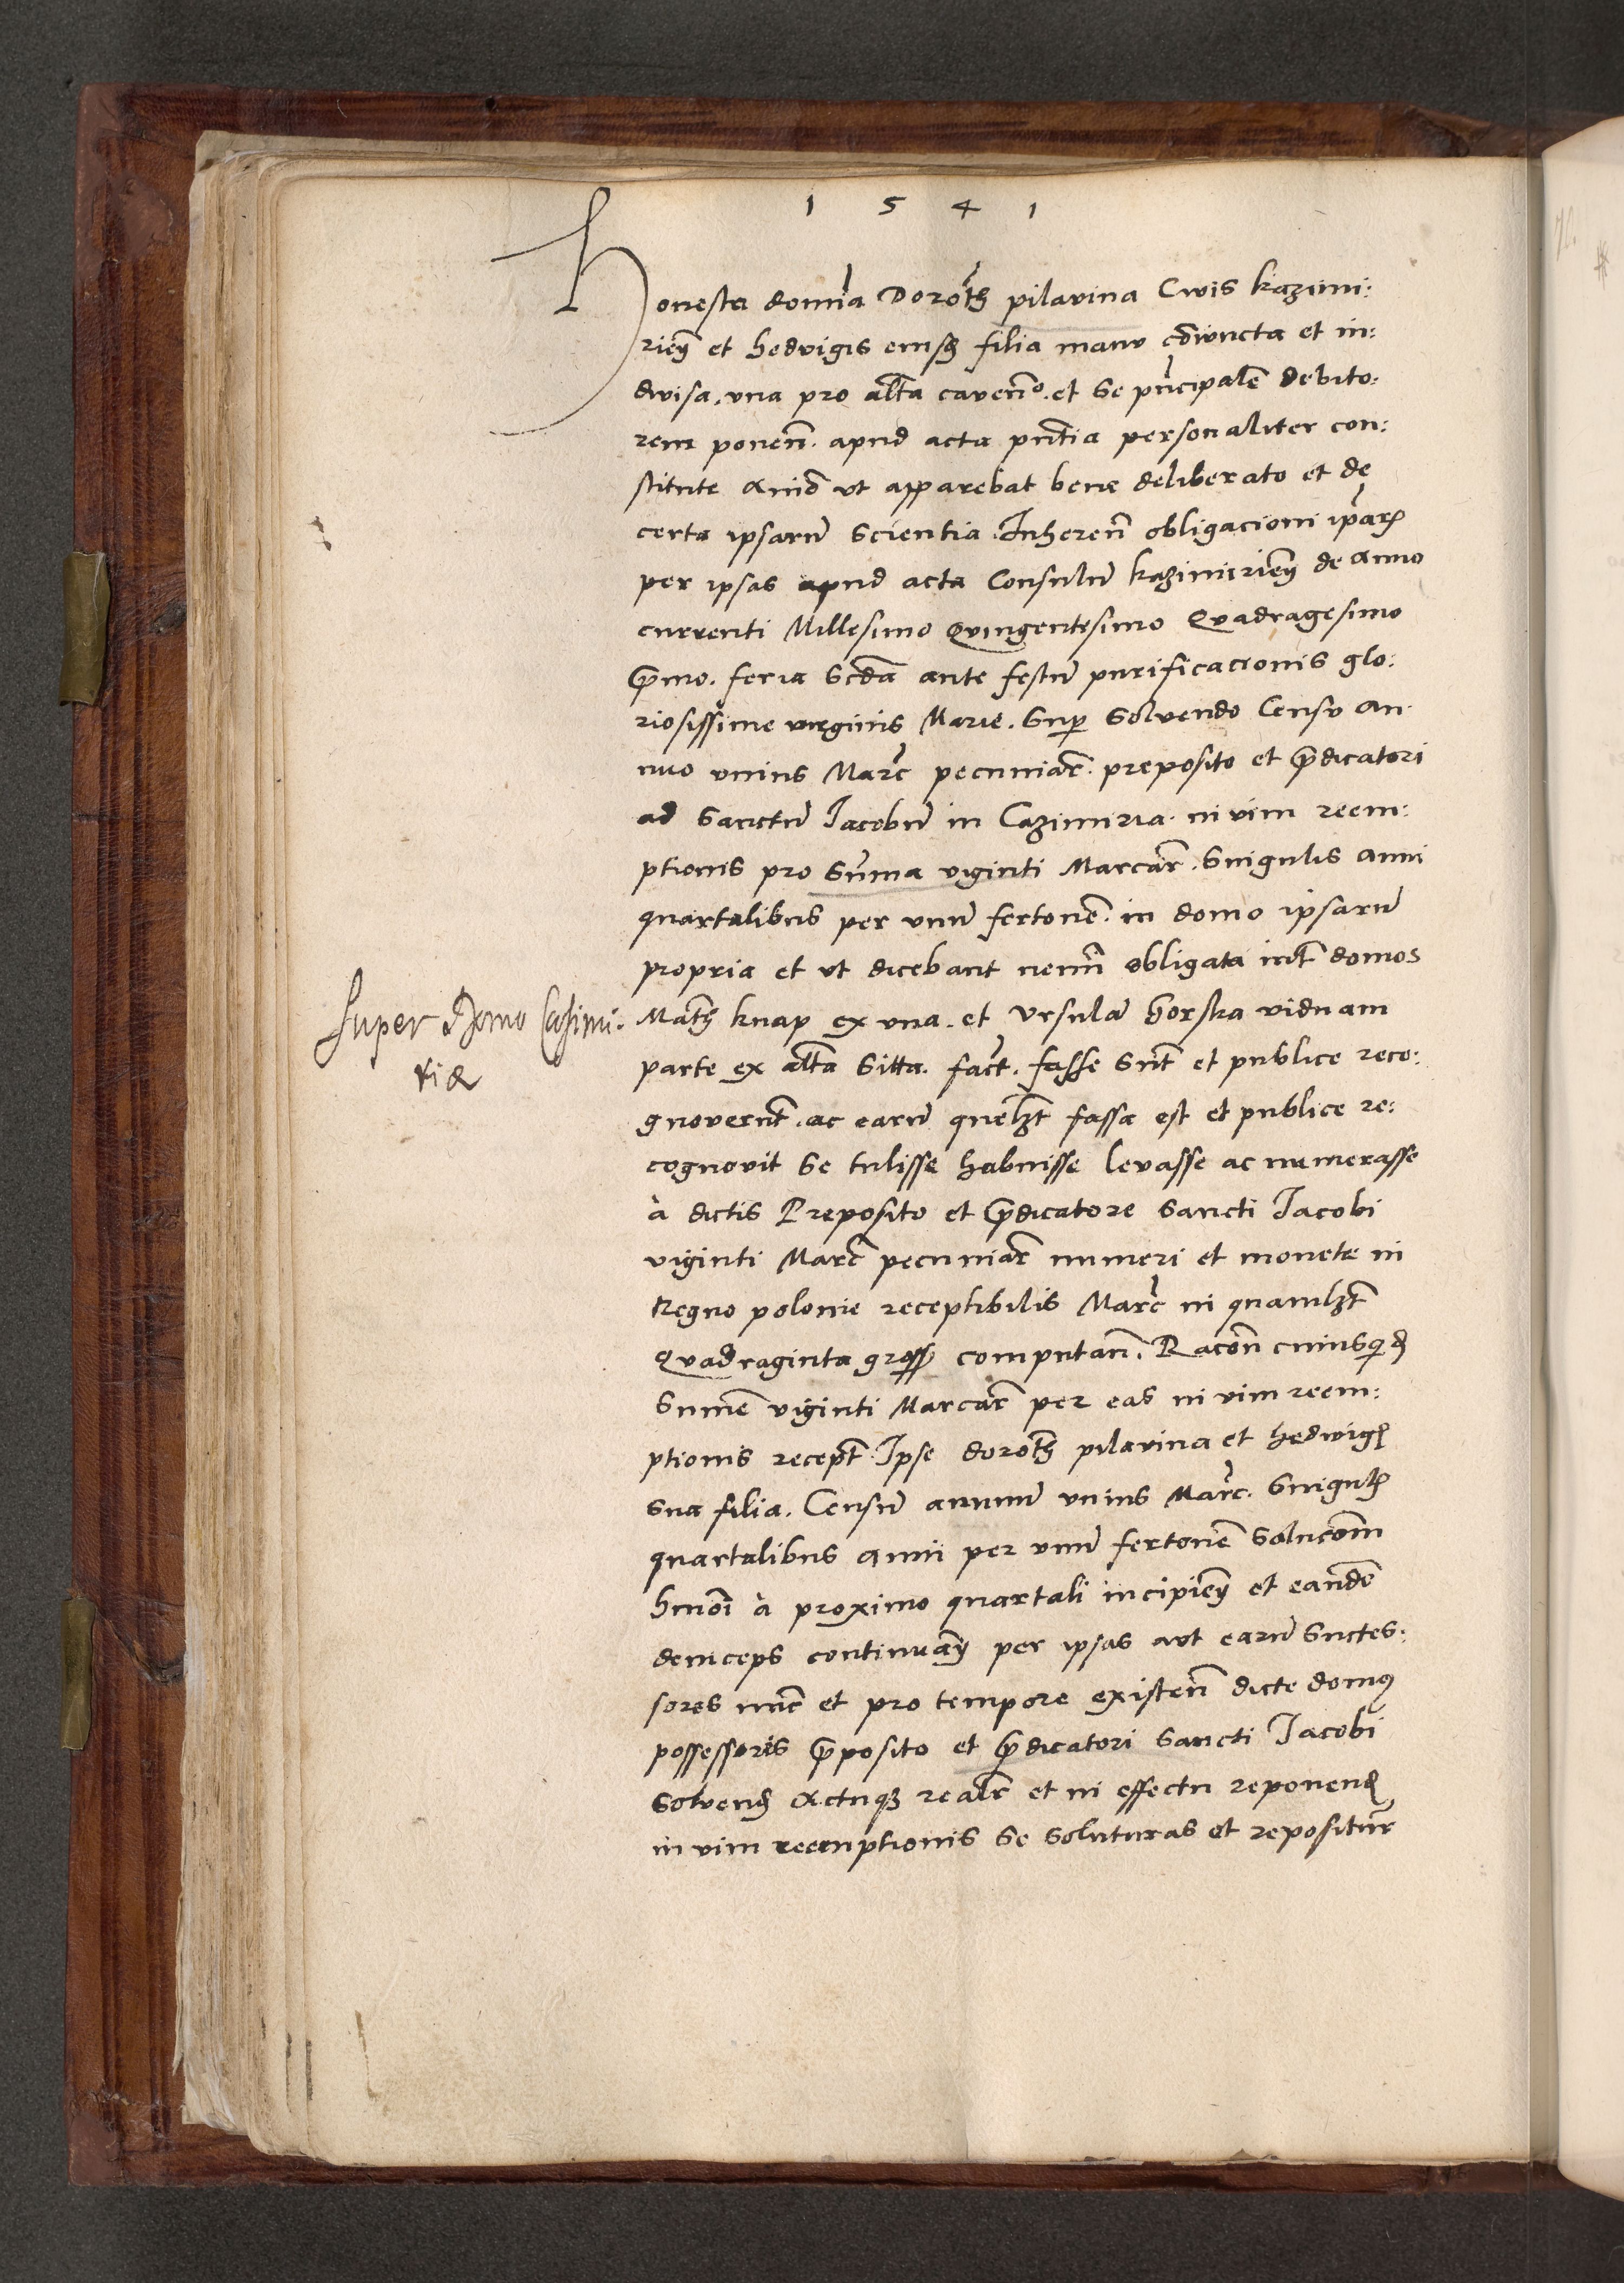 1 5 4 1
Honesta domĩa Doroth pilarina Civis kazimi:
rieñ et hedvigis eiusꝫ filia manu cõiuncta et in:
divisa, una pro altã caveñ. et se prĩcipalẽ debito:
rem poneñ. apud acta pñtia personaliter con:
stitute Anĩo ut apparebat bene deliberato et de
certa ipsarũ scientia Inhereñ obligacioni ip̃aꝝ
per ipsas apud acta Consulũ kazimirieñ de Anno
currenti Millesimo Quingentesimo Quadragesimo
p̃mo. feria scďa ante festũ purificacionis glo:
riosissime virginis Marie. Suꝑ solvendo Censu an
nuo unius Marc̃ pecuniar̃. preposito et p̃dicatori
ad Sanctũ Jacobũ in Cazimiria. in vim reem:
ptionis pro Sum̃a viginti Marcar̃. Singulis anni
quartalibus per unũ fertonẽ. in domo ipsarũ
propria et ut dicebant nemĩ obligata int̃ domos
Math knap ex una. et Ursulã Gorska viduam
parte ex alt̃a sitta. fact̃. fasse sũt et publice reco:
gnoverũt. ac earũ quelꝫt fassa est et publice re:
cognovit se tulisse habuisse levasse ac numerasse
à dictis Preposito et p̃dicatore Sancti Jacobi
viginti Marc̃ pecuniar̃ numeri et monete in
Regno polonie receptibilis Marc̃ in quamlꝫt
Quadraginta gross computañ. Racoñ cuiusquid
Sum̃e viginti Marcar̃ per eas in vim reem:
ptionis recept̃. Ipse doroth pilarina et hedwigꝭ
sua filia. Censũ annuũ unius Marc̃. Singulꝭ
quartalibus anni per unũ fertonẽ solucoñ
hmõi à proximo quartali incipieñ et eandẽ
deinceps continuañ per ipsas aut earũ succes:
sores nũc et pro tempore existeñ dicte domꝰ
possessores p̃posito et p̃dicatori Sancti Jacobi
solvenꝭ Actuqꝫ realr̃ et in effectu reponenꝭ
in vim reemptionis se soluturas et repositur̃
Super Domo Casimi:
riæ